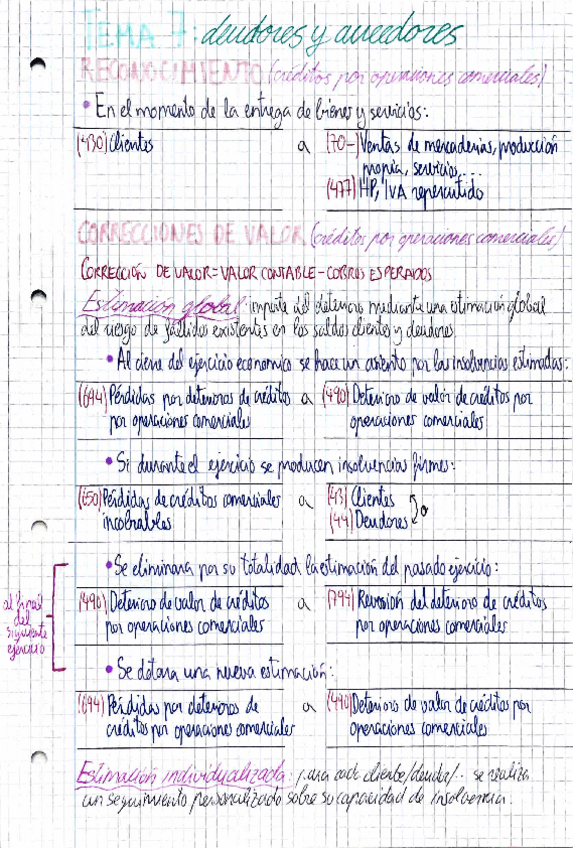 TEMA 7: deudores y acreedores
RECONOCIMIENTO (créditos por operaciones comerciales)
• En el momento de la entrega de bienes y servicios:
(430) Clientes a (70-) Ventas de mercaderías, producción
propia, servicios,...
(477) HP, IVA repercutido
CORRECCIONES DE VALOR (créditos por operaciones comerciales)
CORRECCIÓN DE VALOR = VALOR CONTABLE - COBROS ESPERADOS
Estimación global: importe del deterioro mediante una estimación global
del riesgo de fallidos existentes en los saldos clientes y deudores
• Al cierre del ejercicio económico se hace un asiento por las insolvencias estimadas:
(694) Pérdidas por deterioros de créditos a (490) Deterioro de valor de créditos por
por operaciones comerciales operaciones comerciales
• Si durante el ejercicio se producen insolvencias firmes:
(650) Pérdidas de créditos comerciales a (43) Clientes
incobrables (44) Deudores o
al final
del
siguiente
ejercicio
• Se eliminara por su totalidad la estimación del pasado ejercicio:
(490) Deterioro de valor de créditos a (794) Reversión del deterioro de créditos
por operaciones comerciales por operaciones comerciales
• Se dotara una nueva estimación:
(694) Pérdidas por deterioros de a (490) Deterioro de valor de créditos por
créditos por operaciones comerciales operaciones comerciales
Estimación individualizada: para cada cliente/deudor/.. se realiza
un seguimiento personalizado sobre su capacidad de insolvencia.